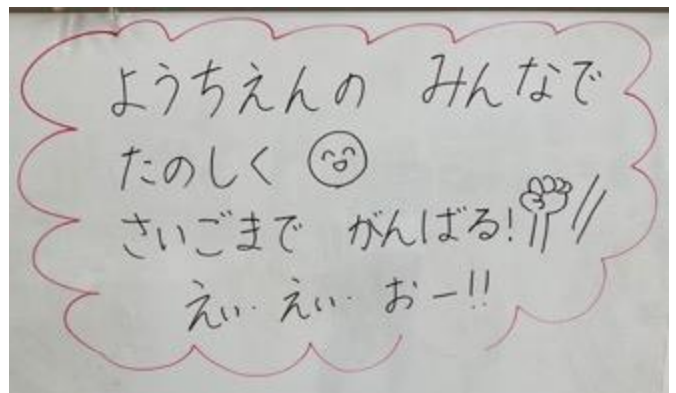 ようちえんの みんなで
たのしく
さいごまで がんばる!
えぃ・えぃ・おー!!